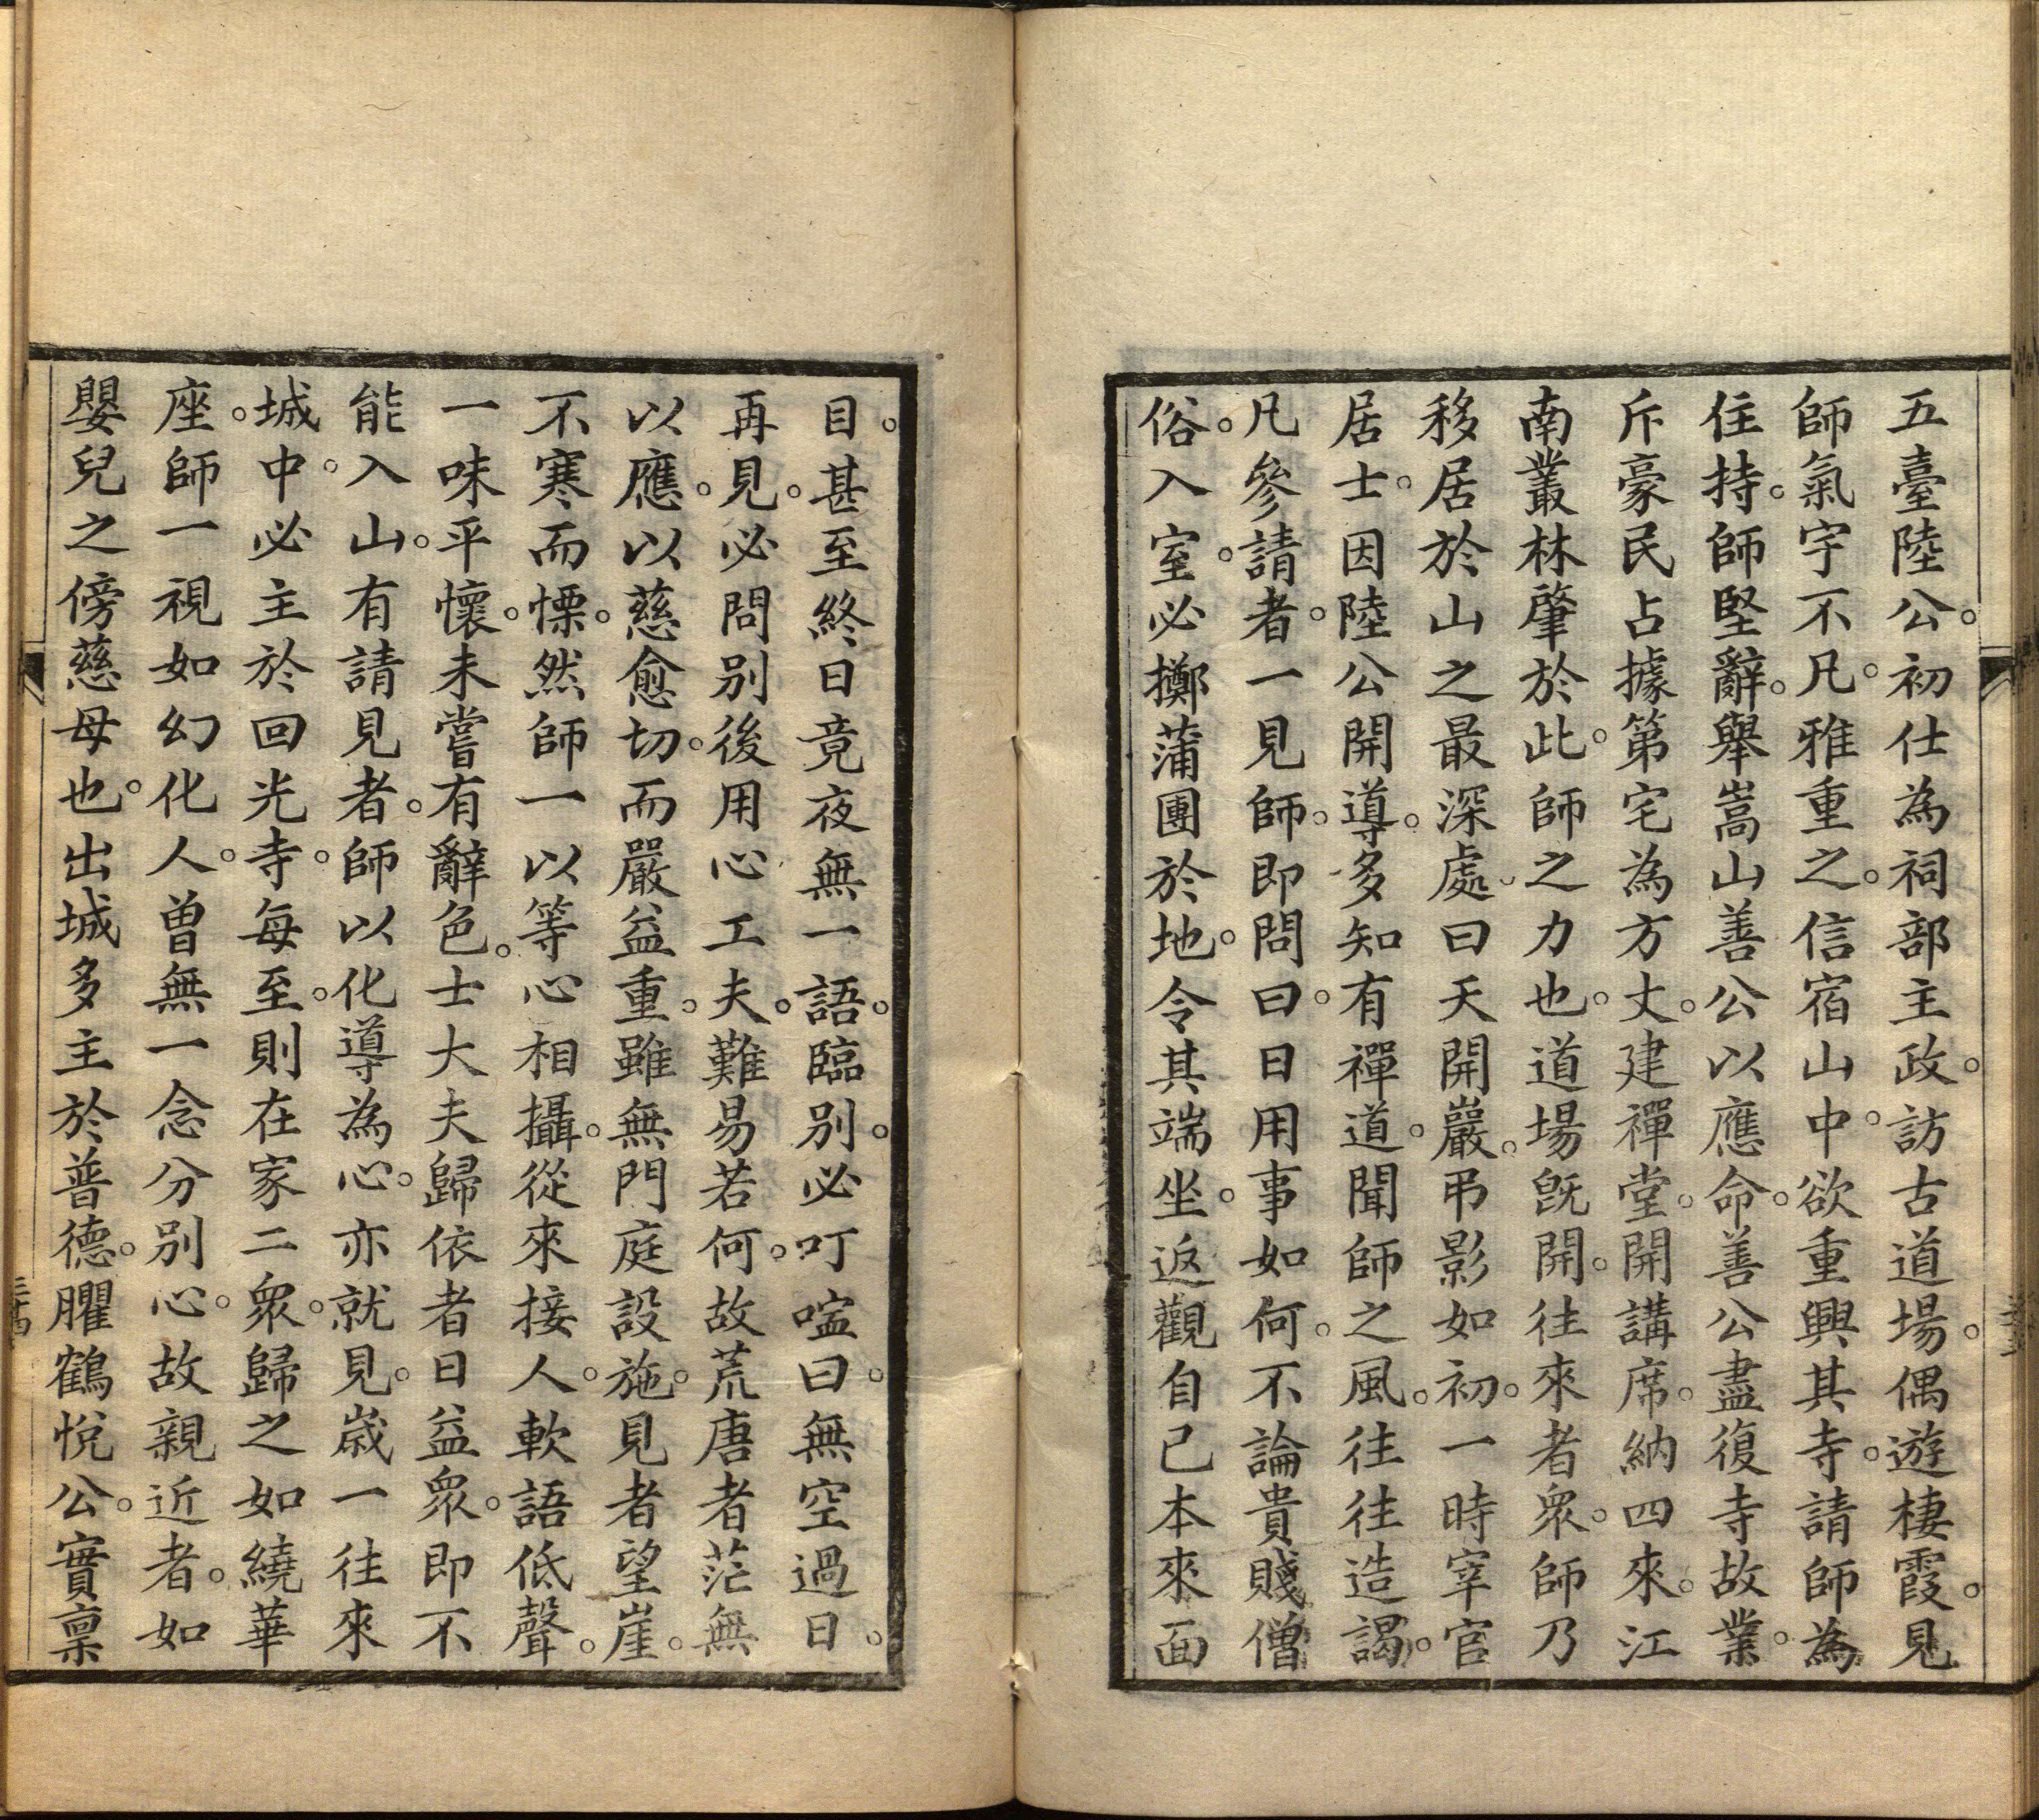 五臺陸公。初仕為祠部主政。訪古道場。偶遊棲霞。見
師氣宇不凡。雅重之。信宿山中。欲重興其寺。請師為
住持。師堅辭。舉嵩山善公以應命。善公盡復寺故業。
斥豪民占據第宅為方丈。建禪堂。開講席。納四來。江
南叢林肇於此。師之力也。道場旣開。往來者眾。師乃
移居於山之最深處。曰天開巖。弔影如初。一時宰官
居士。因陸公開導。多知有禪道。聞師之風。往往造謁。
凡參請者。一見師。即問曰。日用事如何。不論貴賤僧
俗。入室。必擲蒲團於地。令其端坐。返觀自己本來面
目。甚至終日竟夜無一語。臨別。必叮嚀曰。無空過日。
再見。必問別後用心工夫。難易若何。故荒唐者茫無
以應。以慈愈切。而嚴益重。雖無門庭設施。見者望崖。
不寒而慄。然師一以等心相攝。從來接人。軟語低聲。
一味平懷。未嘗有辭色。士大夫歸依者日益眾。即不
能入山。有請見者。師以化導為心。亦就見。歲一往來
城中。必主於回光寺。每至。則在家二眾。歸之如繞華
座。師一視如幻化人。曾無一念分別心。故親近者。如
嬰兒之傍慈母也。出城多主於普德。臞鶴悅公。實稟